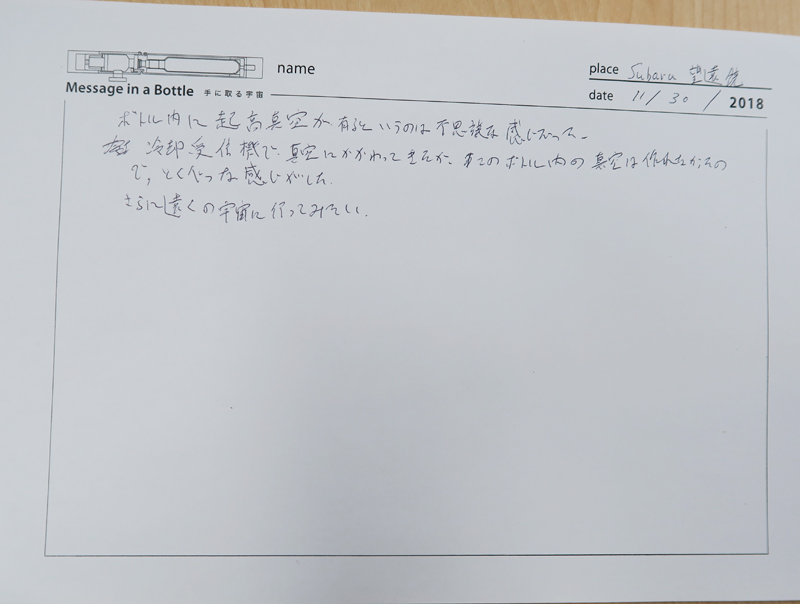 name
Message in a Bottle 手に取る宇宙
place Subaru 望遠鏡
date 11 / 30 / 2018
ボトル内に起高真空が有るというのは不思議な感じだった。
冷却受信機で真空にかかわってきたが、このボトル内の真空は作れなかったの
で、とくべつな感じがした。
さらに遠くの宇宙に行ってみたい。